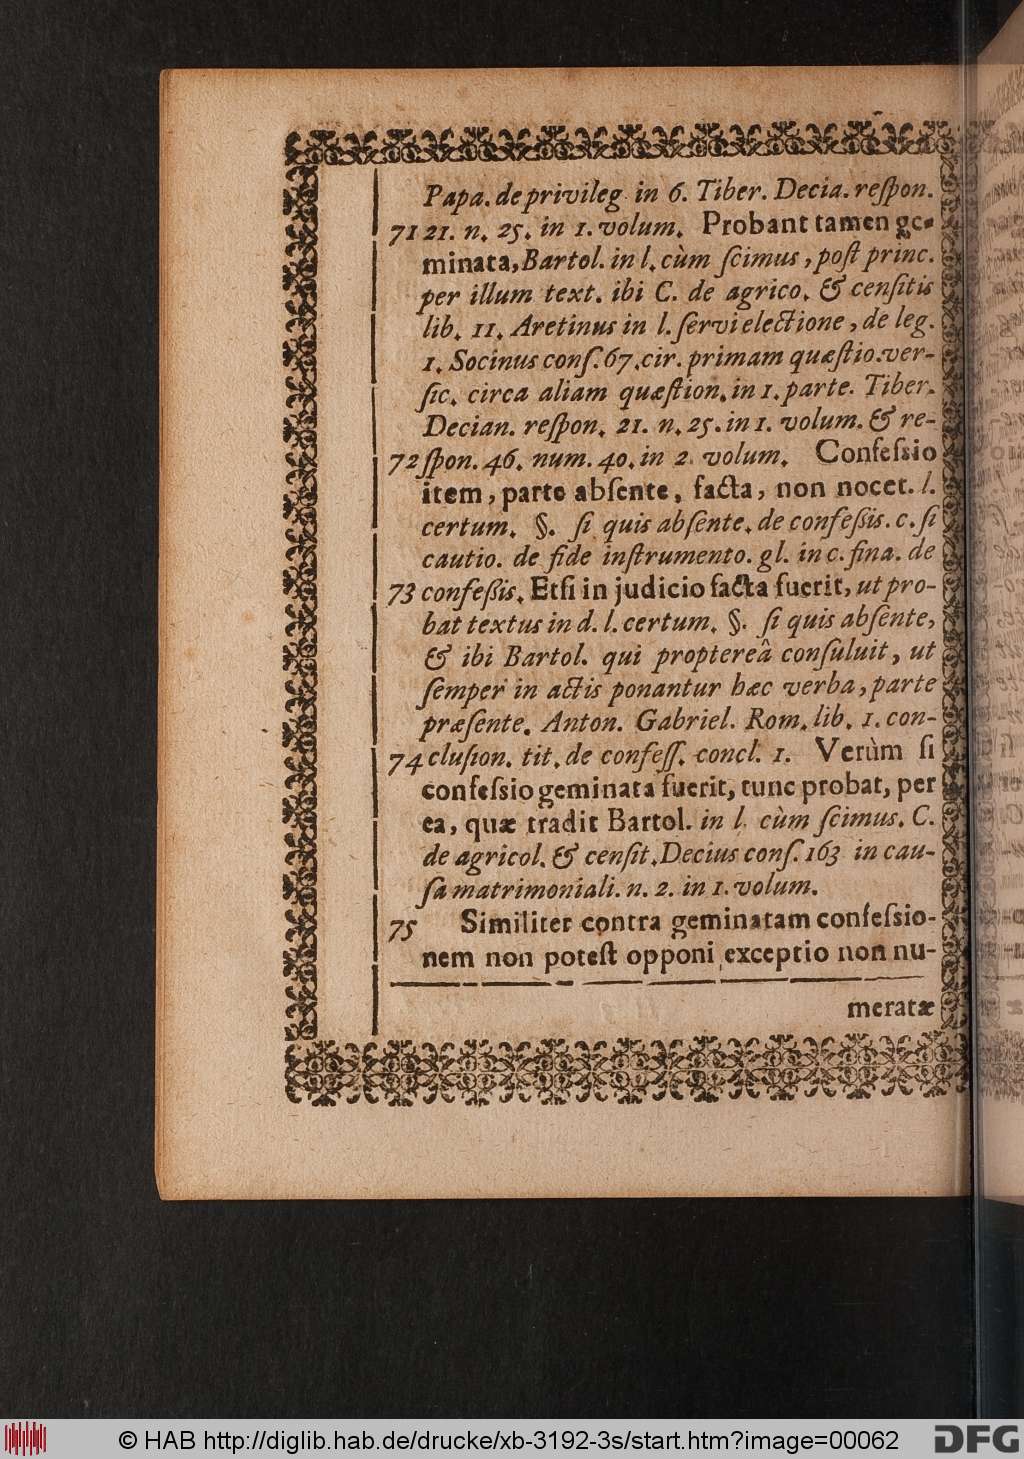 Papa. de privileg. in 6. Tiber. Decia. reſpon.
71 21. n. 25. in 1. volum. Probant tamen ge-
minata, Bartol. in l. cùm ſcimus, poſt princ.
per illum text. ibi C. de agrico. & cenſitis
lib. 11. Aretinus in l. ſervi electione, de leg.
1. Socinus conſ. 67. cir. primam quæſtio. ver-
ſic. circa aliam quæſtion. in 1. parte. Tiber.
Decian. reſpon. 21. n. 25. in 1. volum. & re-
72 ſpon. 46. num. 40. in 2. volum. Confeſsio
item, parte abſente, facta, non nocet. l.
certum. §. ſi quis abſente. de confeſsis. c. ſi
cautio. de fide inſtrumento. gl. in c. fina. de
73 confeſsis. Etſi in judicio facta fuerit, ut pro-
bat textus in d. l. certum. §. ſi quis abſente,
& ibi Bartol. qui proptereâ conſuluit, ut
ſemper in actis ponantur hæc verba, parte
præſente. Anton. Gabriel. Rom. lib. 1. con-
74 cluſion. tit. de confeſſ. concl. 1. Verùm ſi
confeſsio geminata fuerit, tunc probat, per
ea, quæ tradit Bartol. in l. cùm ſcimus. C.
de agricol. & cenſit. Decius conſ. 163 in cau-
ſa matrimoniali. n. 2. in 1. volum.
75 Similiter contra geminatam confeſsio-
nem non poteſt opponi exceptio non nu-
meratæ
© HAB http://diglib.hab.de/drucke/xb-3192-3s/start.htm?image=00062
DFG